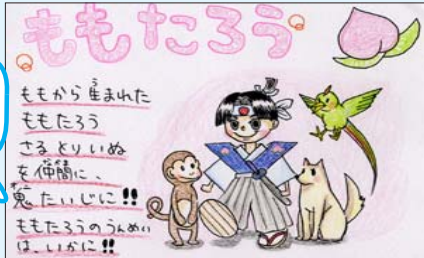 ももたろう
ももから産まれた
ももたろう
さるとりいぬ
を仲間に、
鬼たいじに!!
ももたろうのうんめい
は、いかに!!